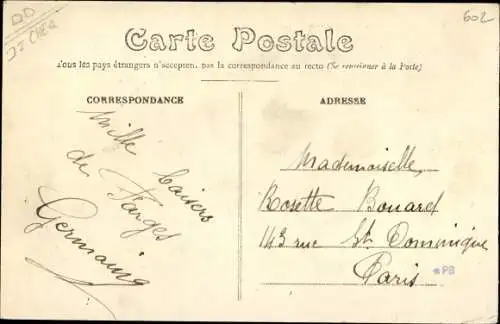 602
Carte Postale
Tous les pays étrangers n'acceptent pas la correspondance au recto (Se renseigner à la Poste)
CORRESPONDANCE
Mille baisers
de Farges
Germaine
ADRESSE
Mademoiselle,
Rosette Bouard
143 rue St. Dominique
Paris
*PB